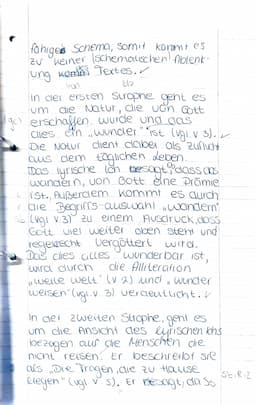 fähiges Schema, somit kommt es
zu keiner (schematischen) Ablenk-
ung Textes. ✓
In der ersten Strophe geht es
um die Natur, die von Gott
erschaffen wurde und das
dies ein „Wunder" ist (vgl. v 3).
Die Natur dient dabei als Zuflucht
aus dem täglichen Leben.
Das lyrische Ich besagt, dass das
wandern, von Gott eine Prämie
ist, Außerdem kommt es durch
die Begriffs-auswahl „wandern"
(vgl. v 3) zu einem Ausdruck, dass
Gott viel weiter oben steht und
regelrecht vergöttert wird.
Das dies alles wunderbar ist,
wird durch die Alliteration
„weite Welt" (v 2) und „wunder
weisen" (vgl. v. 3) verdeutlicht. ✓
In der zweiten Strophe, geht es
um die Ansicht des Lyrischen Ichs
bezogen auf die Menschen die
nicht reisen. Er beschreibt sie
als „Die Trägen, die zu Hause
liegen" (vgl. v 5). Er besagt, das